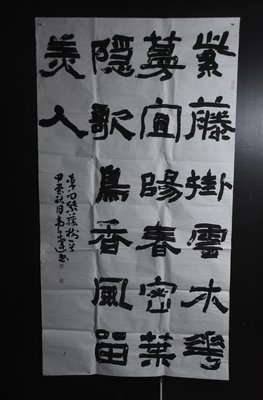 紫藤掛雲木花
蔓宜陽春密葉
隱歌鳥香風留
美人
李白紫藤樹